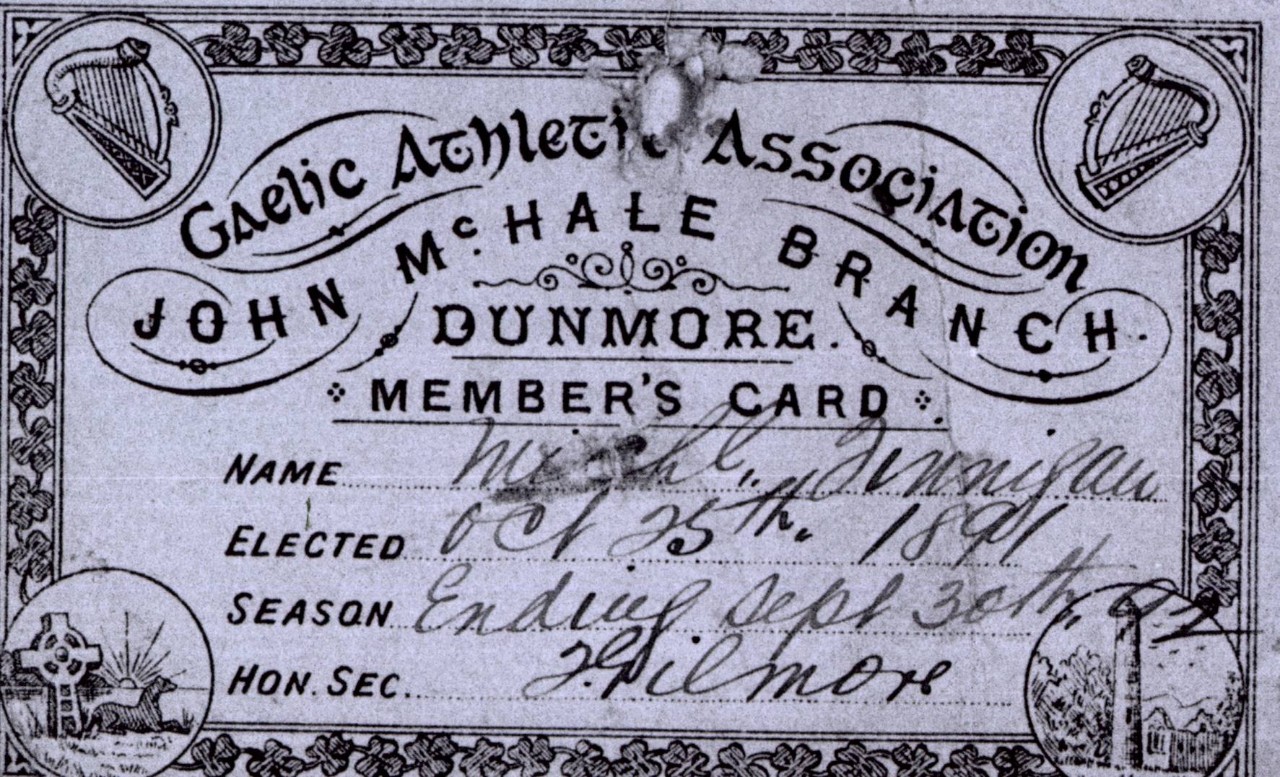 Gaelic Athletic Association
JOHN McHALE BRANCH.
DUNMORE.
MEMBER'S CARD
NAME Michl. Finnigan
ELECTED Oct 25th. 1891
SEASON Ending Sept 30th, 92
HON. SEC. Gilmore